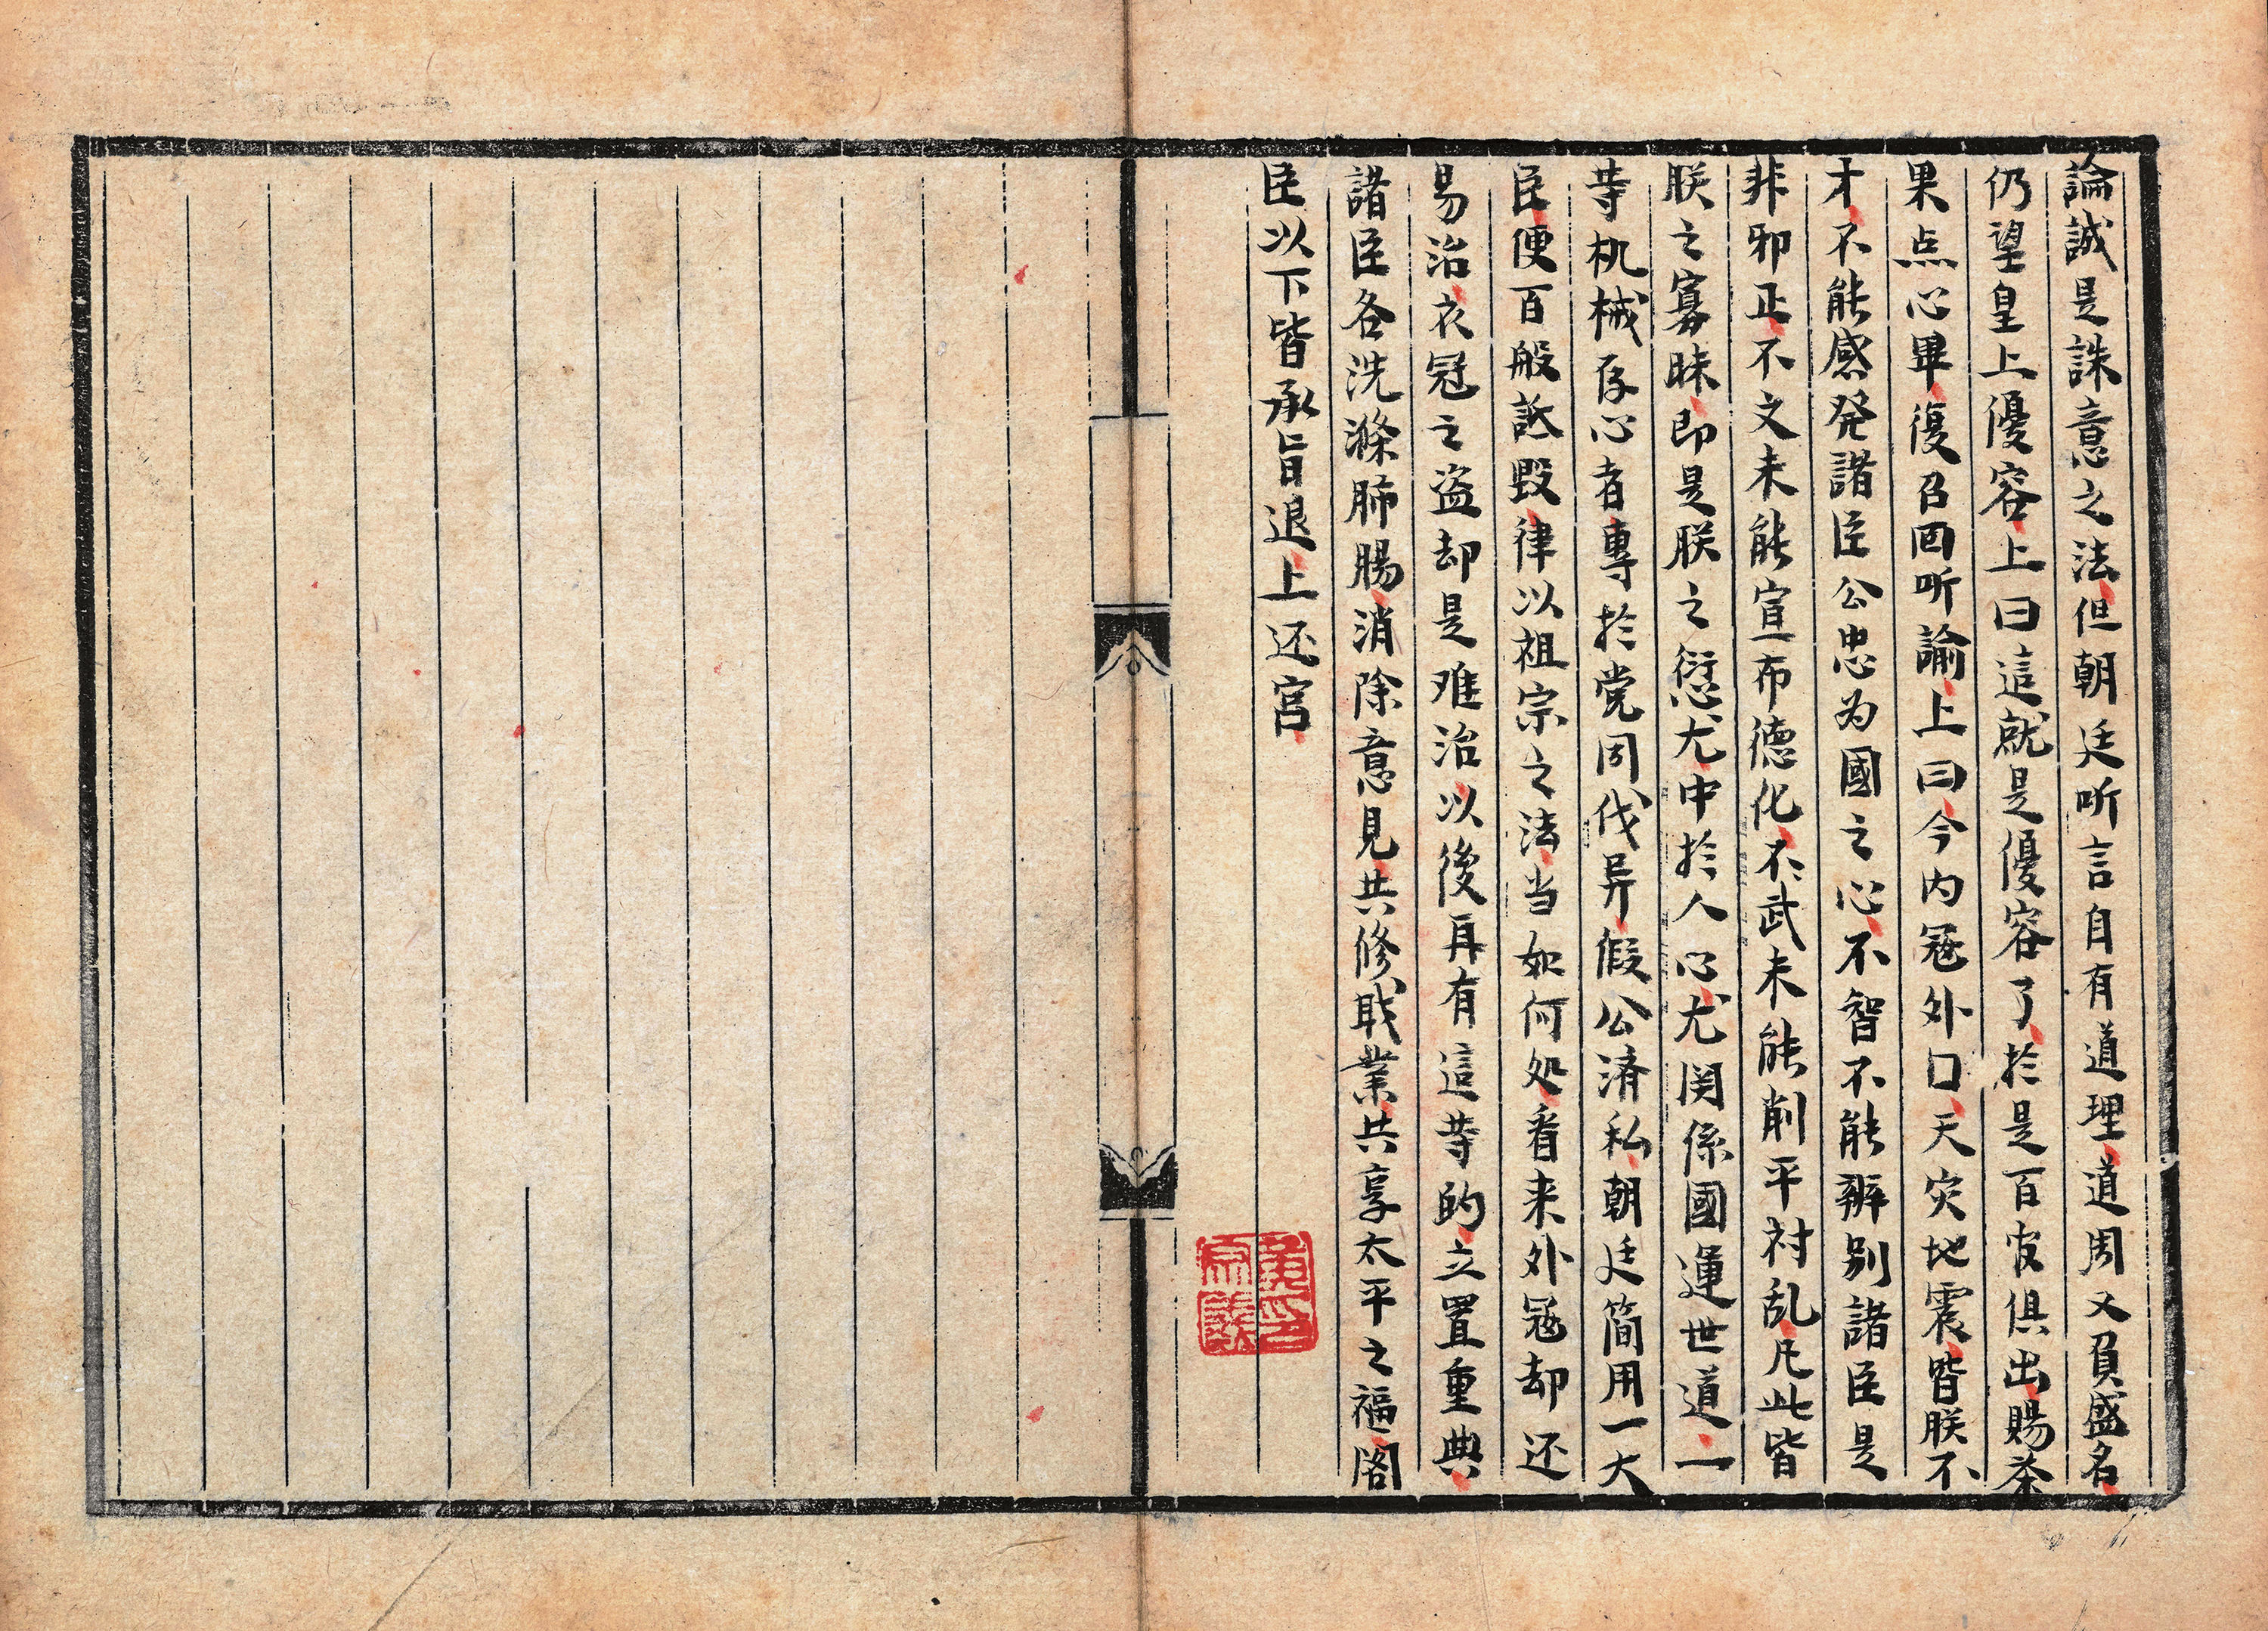 論誠是誅意之法但朝廷听言自有道理道周又負盛名
仍望皇上優容上曰這就是優容了於是百官俱出賜茶
果点心畢復召回听諭上曰今内冦外口天灾地震皆朕不
才不能感発諸臣公忠为國之心不智不能辨别諸臣是
非邪正不文未能宣布德化不武未能削平対乱凡此皆
朕之寡昧即是朕之愆尤中於人心尤関係國運世道一
等机械存心者專於党同伐异假公済私朝廷简用一大
臣便百般詆毀律以祖宗之法当如何处看来外冦却还
易治衣冠之盗却是难治以後再有這等的立置重典
諸臣各洗滌肺腸消除意見共修職業共享太平之福閣
臣以下皆承旨退上还宫